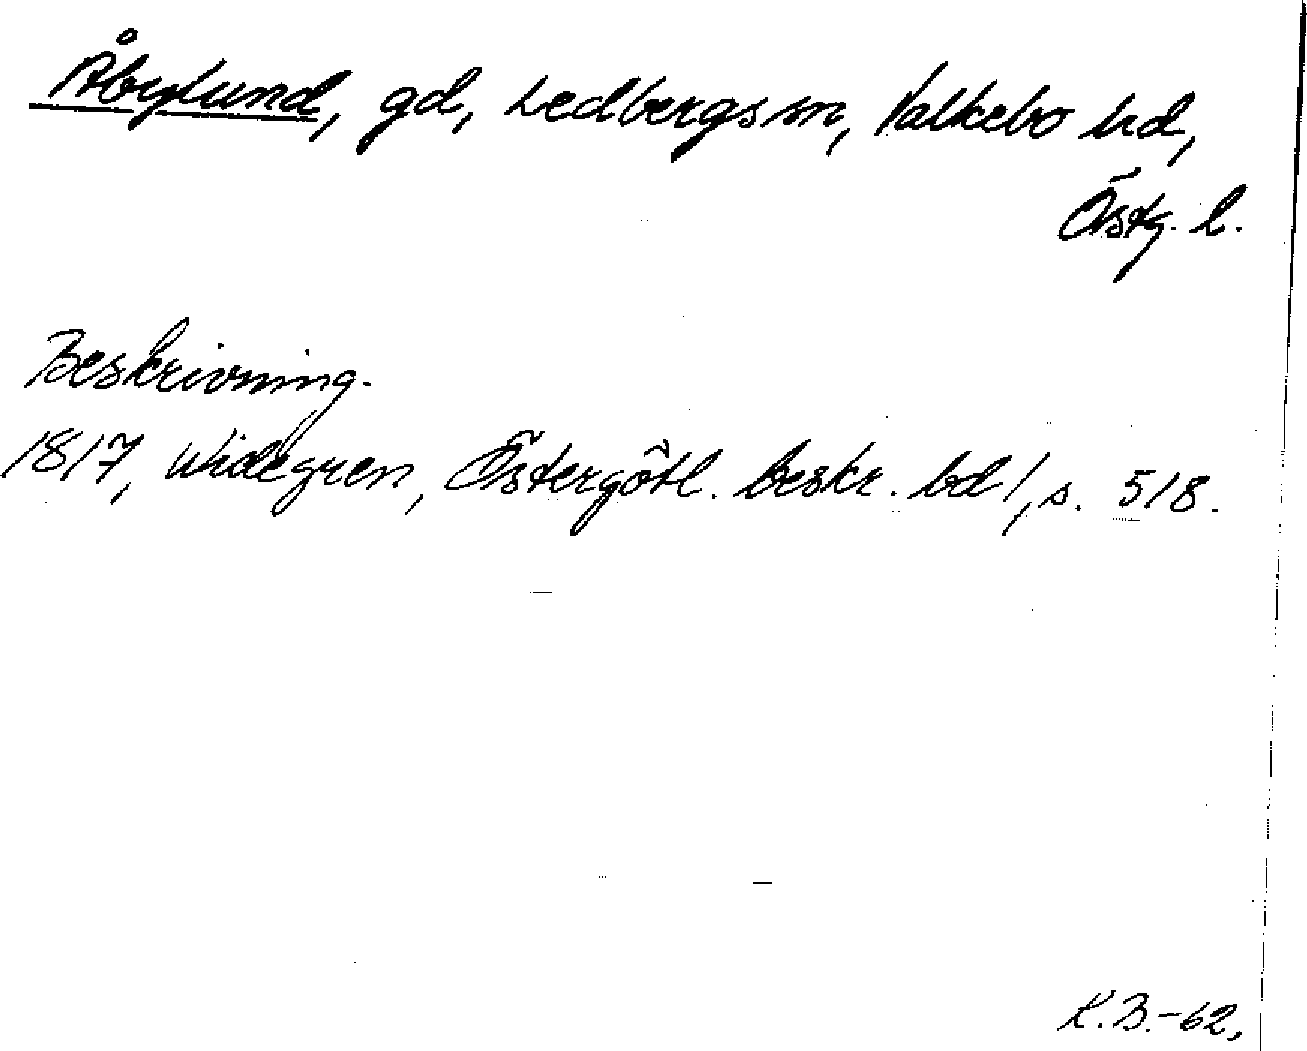 Åbylund, gd, Ledbergs sn, Valkebo hd,
Östg. l.
Beskrivning.
1817, Widegren, Östergötl. beskr. bd 1, s. 518.
K.B.-62.